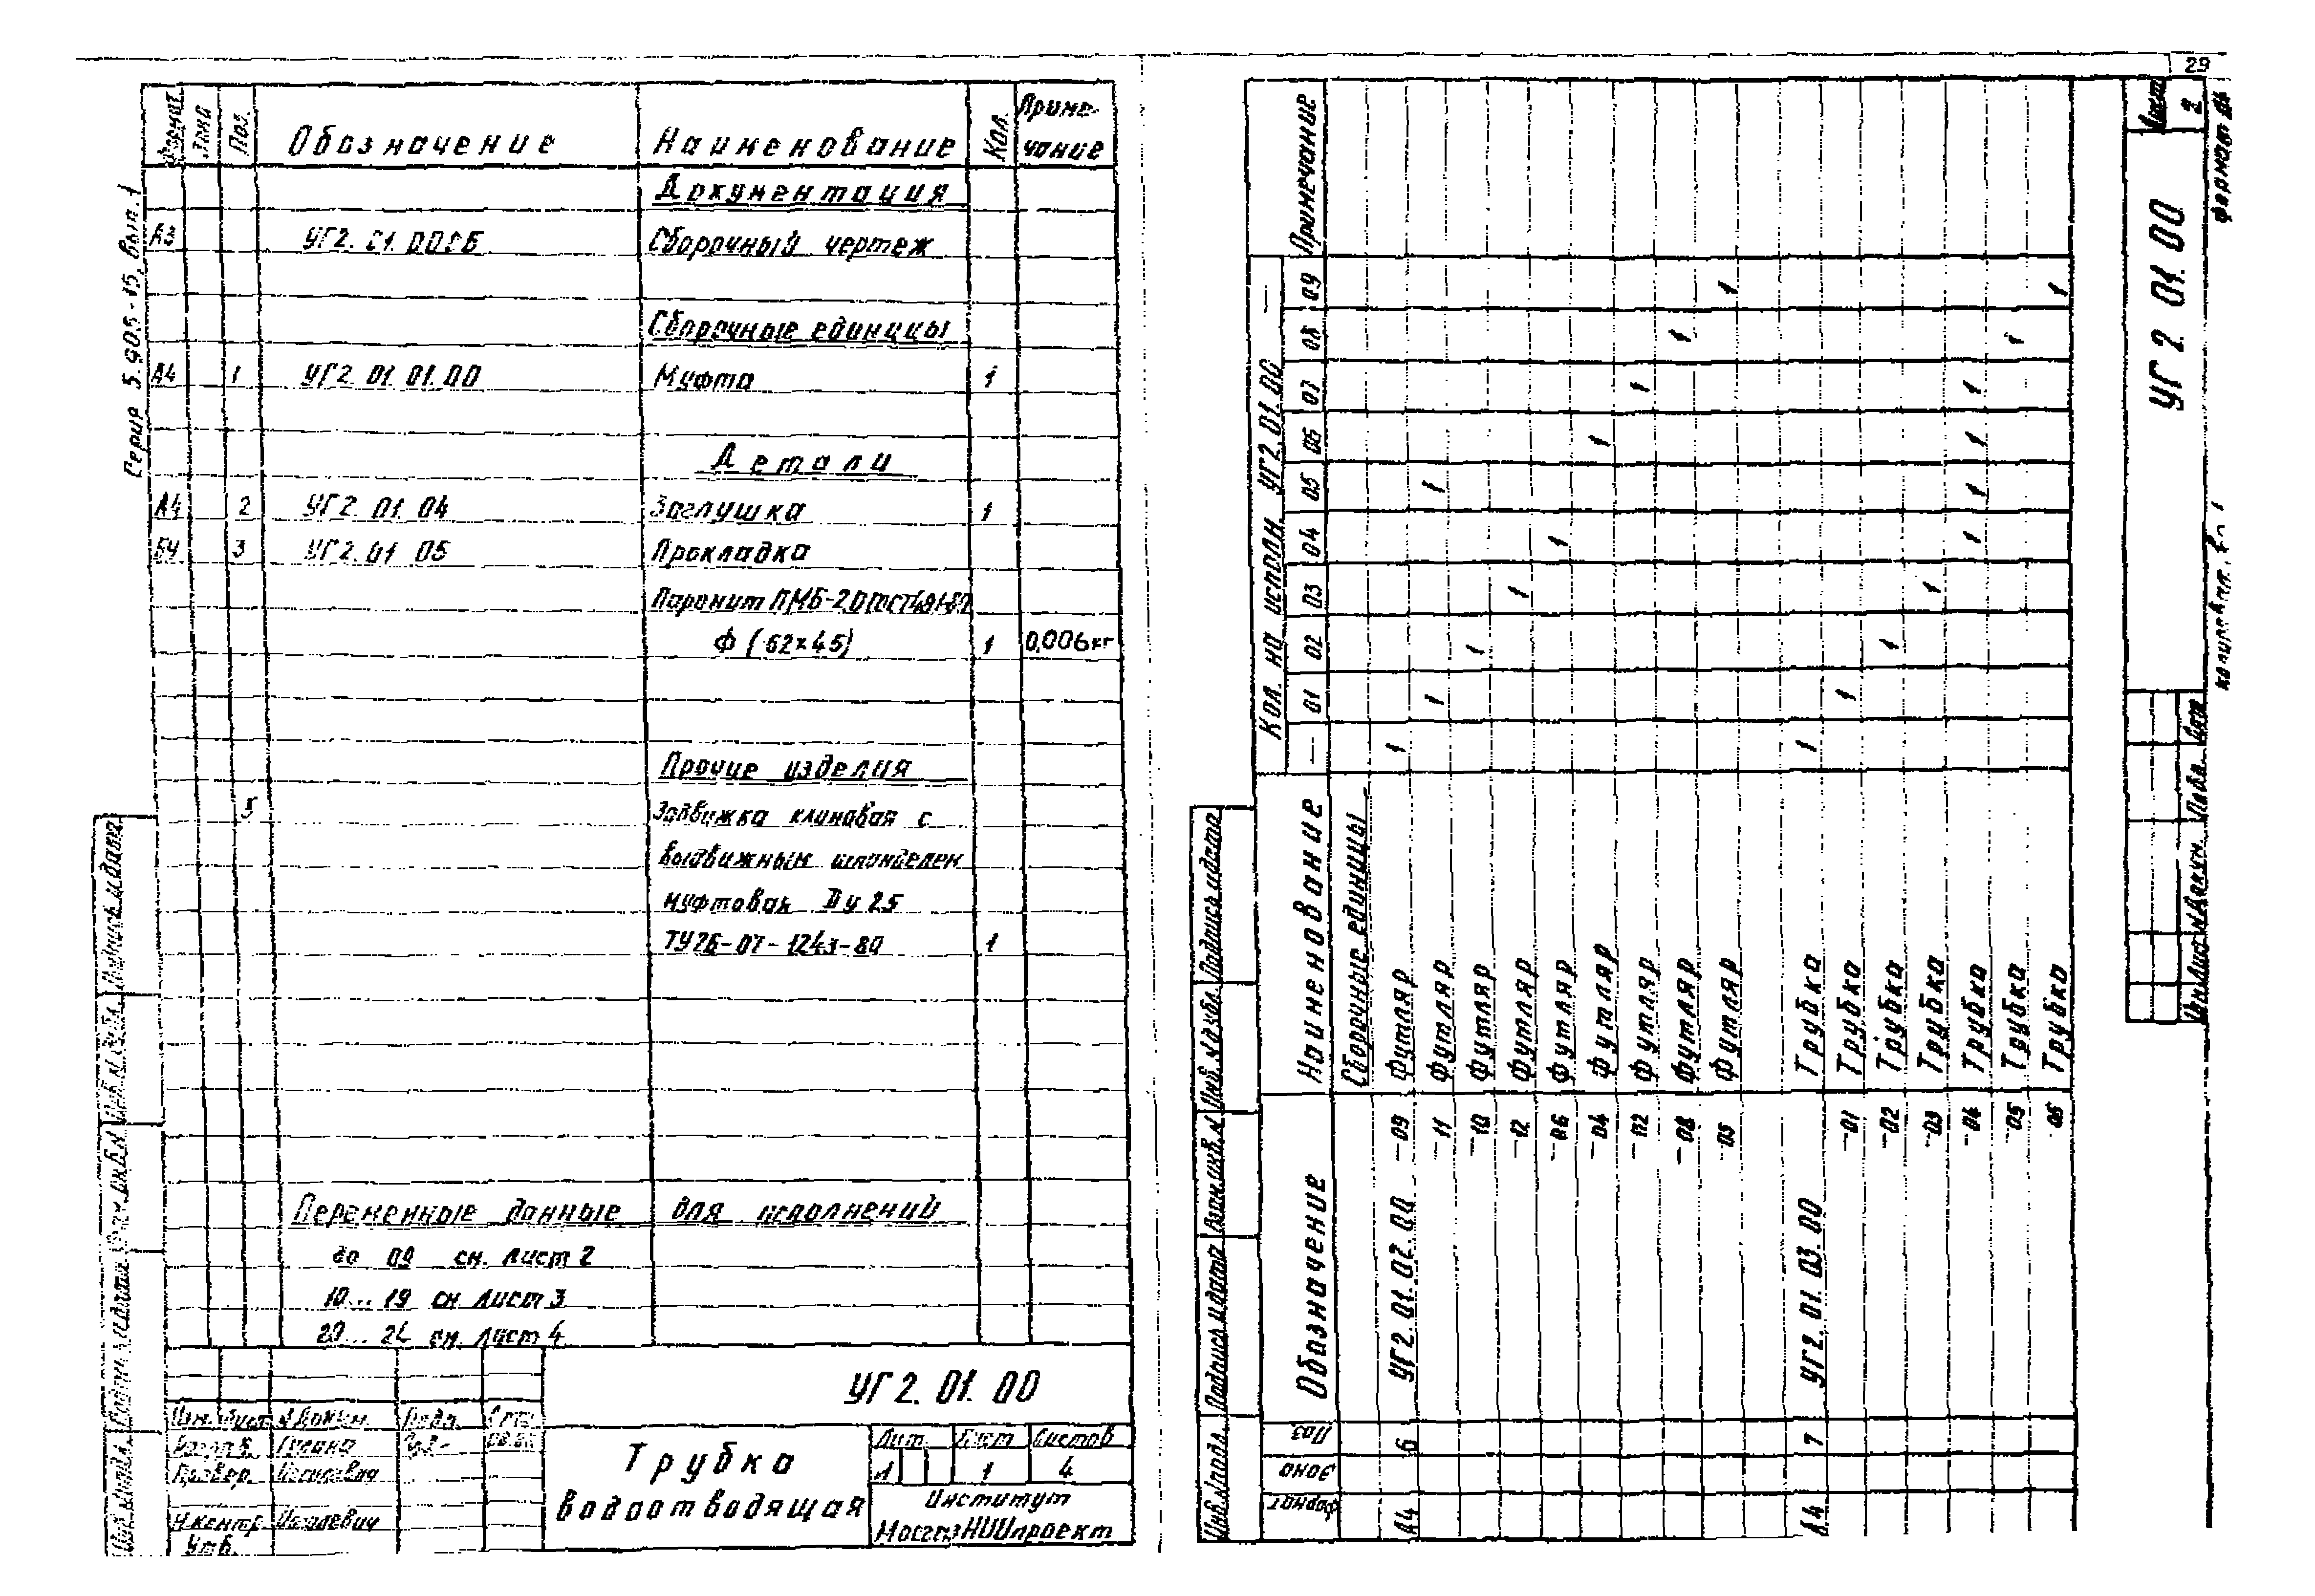 29
Серия 5.905-15, вып. 1
Формат Зона Поз. Обозначение Наименование Кол. Примечание
Документация
А3 УГ2. 01. 00СБ Сборочный чертеж
Сборочные единицы
А4 1 УГ2. 01. 01. 00 Муфта 1
Детали
А4 2 УГ2. 01. 04 Заглушка 1
БЧ 3 УГ2. 01. 05 Прокладка
Паронит ПМБ-2,0 ГОСТ481-80
Ф (62×45) 1 0,006кг
Прочие изделия
5 Задвижка клиновая с
выдвижным шпинделем
муфтовая Dу 25
ТУ26-07-1243-80 1
Переменные данные для исполнений
до 09 см. лист 2
10... 19 см лист 3
20... 24 см. лист 4
УГ2. 01. 00
Изм. Лист №Докум. Подп.
Трубка
водоотводящая
Лит. Лист Листов
1 4
Институт
МосгазНИИпроект
Провер.
Н.контр.
Утв.
Формат Зона Поз. Обозначение Наименование Кол. на исполн. УГ2.01.00 — Примечание
— 01 02 03 04 05 06 07 08 09
Сборочные единицы
А4 6 УГ2. 01. 02. 00 -09 Футляр 1
-11 Футляр 1 1
-10 Футляр 1
-12 Футляр 1
-06 Футляр 1
-04 Футляр 1
-02 Футляр 1
-08 Футляр 1
-05 Футляр 1
А4 7 УГ2. 01. 03. 00 Трубка 1
-01 Трубка 1
-02 Трубка 1
-03 Трубка 1
-04 Трубка 1 1 1 1
-05 Трубка 1
-06 Трубка 1
Инв.№подл. Подпись и дата Взам.инв.№ Инв.№дубл. Подпись и дата
Изм Лист №Докум. Подп. Дата
УГ 2. 01. 00
Лист
2
Формат